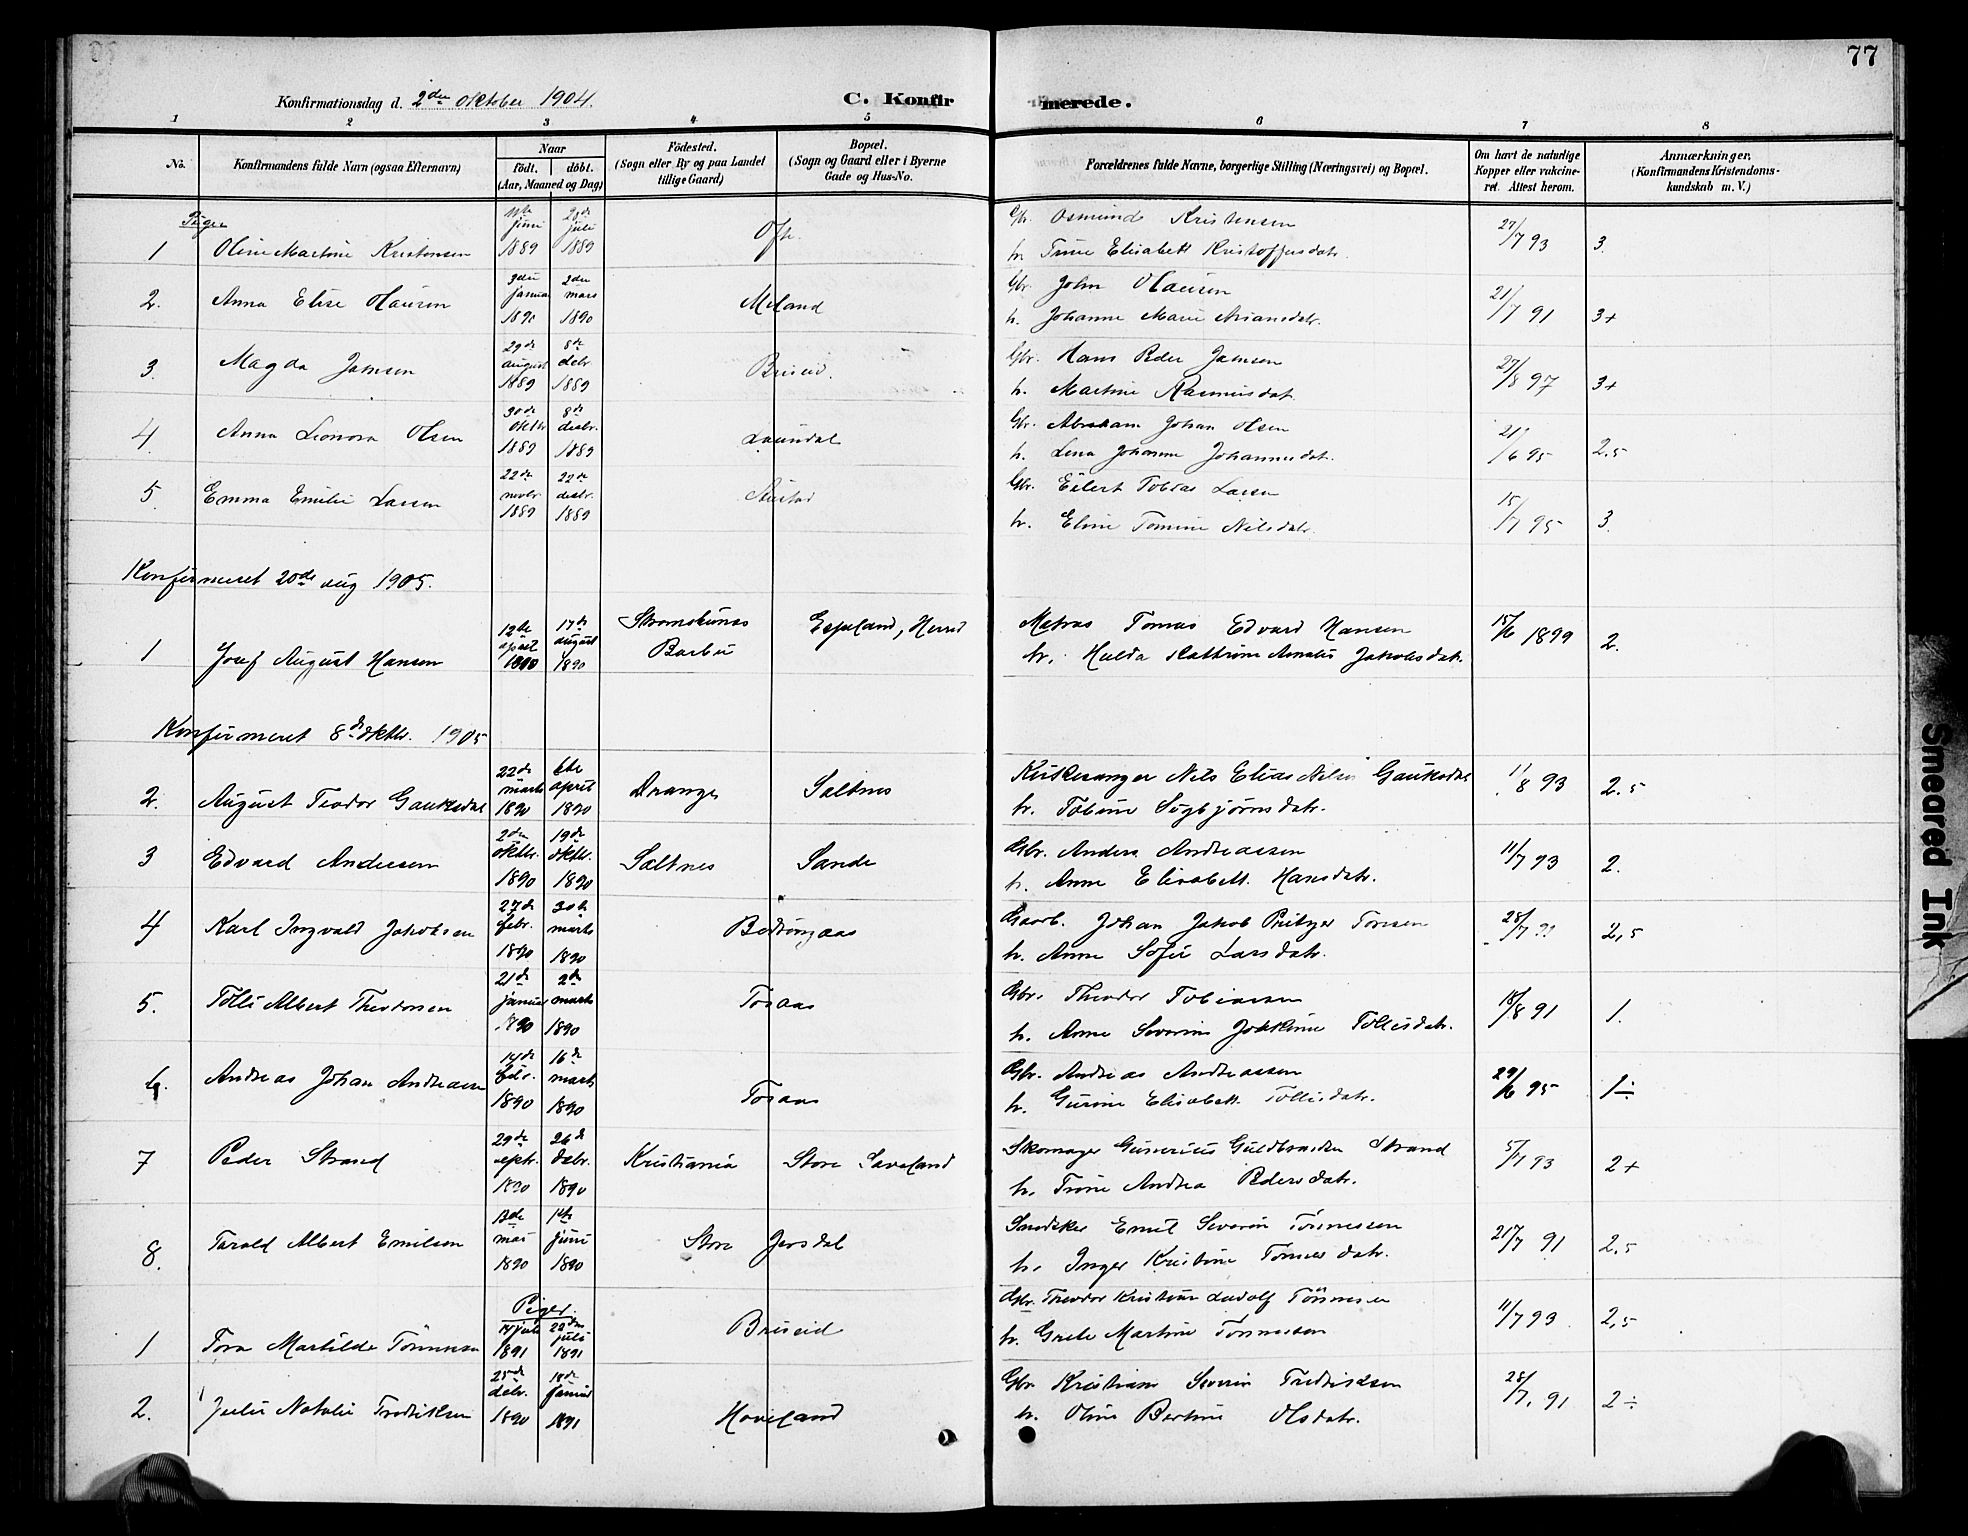 77
Konfirmationsdag d. 2den oktober 1904.
C. Konfir merede.
1 2 3 4 5 6 7 8
No.
Konfirmandens fulde Navn (ogsaa Efternavn)
Naar
født. døbt.
(Aar, Maaned og Dag)
Fødested.
(Sogn eller By og paa Landet
tillige Gaard)
Bopæl.
(Sogn og Gaard eller i Byerne
Gade og Hus-No.
Forældrenes fulde Navne, borgerlige Stilling (Næringsvei) og Bopæl.
Om havt de naturlige
Kopper eller vakcine-
ret. Attest herom.
Anmærkninger.
(Konfirmandens Kristendoms-
kundskab m. V.)
Piger
1 Oline Martine Kristensen juni 1889 juli 1889 Ofte. Gbr. Osmund Kristensen 27/7 93 3.
h. Trine Elisabett Kristoffersdatr.
2. Anna Elise Olausen januar 1890 2den mars 1890 Meland Gbr. John Olausen 21/7 91 3+
h. Johanne Marie
3. Magda Jamsen 29de august 1889 8de debr. 1889 Briseid. Gbr. Hans Peder Jamsen 27/8 97 3+
h. Martine Rasmusdatr.
4. Anna Leonora Olsen 30de oktbr 1889 8de desbr. 1889 Laundal Gbr. Abraham Johan Olsen 21/6 95 2.5
h. Lena Johanne Johannesdatr.
5. Emma Emilie Larsen 22de novbr. 1889 22de desbr. 1889 Gbr. Eilert Tobias Larsen 15/7 95 3.
h. Eline Tomine Nilsdatr.
Konfirmeret 20de aug 1905.
1 Josef August Hansen 12te april 1890 17de august 1890 Strømsbunes Barbu Espeland, Herred Matros Tomas Edvard Hansen 15/6 1899 2.
h. Hulda Kathrine Amalie Jakobsdatr.
Konfirmeret 8de oktbr. 1905
2. August Teodor Gauksdal 22de marts 1890 6te april 1890 Drange Saltnes Kirkesanger Nils Elias Nilsen Gauksdal 11/8 93 2.5
h. Tobine Sigbjørnsdatr.
3 Edvard Andersen 2den oktbr. 1890 19de oktbr. 1890 Saltnes Sande Gbr. Anders Andreassen 11/7 93 2.
h. Anne Elisabett. Hansdatr.
4 Karl Ingvald Jakobsen 27de febr. 1890 30te marts 1890 Gaarb. Johan Jakob Tønesen 28/7 91 2,5
h. Anne Sofie Larsdatr.
5. Tolli Albert Theodorsen 21de januar 1890 2de marts 1890 Tosaas Gbr. Theodor Tobiassen 18/8 91 1.
h. Anne Severine Jokkime Tollisdatr.
6. Andreas Johan Andreasen 14de febr. 1890 16de marts 1890 Tosaas Gbr. Andreas Andreassen 29/6 95 1÷
h. Gurine Elisabett Tollisdatr.
7 Peder Strand 29de septr. 1890 26de debr. 1890 Kristiania Store Saveland Skomager Gunerius Guldbrandsen Strand 5/7 93 2+
h. Trine Andrea Pedersdatr.
8. Tarald Albert Emilsen 13de mai 1890 1ste juni 1890 Store Jersdal Snedker Emil Severin Tønnessen 21/7 91 2,5
h. Inger Kristine Tønnesdatr.
Piger.
1 Tora Martilde Tønnessen 14 juli 1891 juli 1891 Briseid Gbr. Theodor Kristian Ludolf Tønnesen 11/7 93. 2,5
h. Grete Martine Tønnessen
2. Julie Natalie Fredriksen 25de debr. 1890 18de januar 1891 Haveland Gbr Kristian Severin Fredriksen 28/7. 91 2÷
h. Oline Bertine Olsdatr.
Smeared Ink